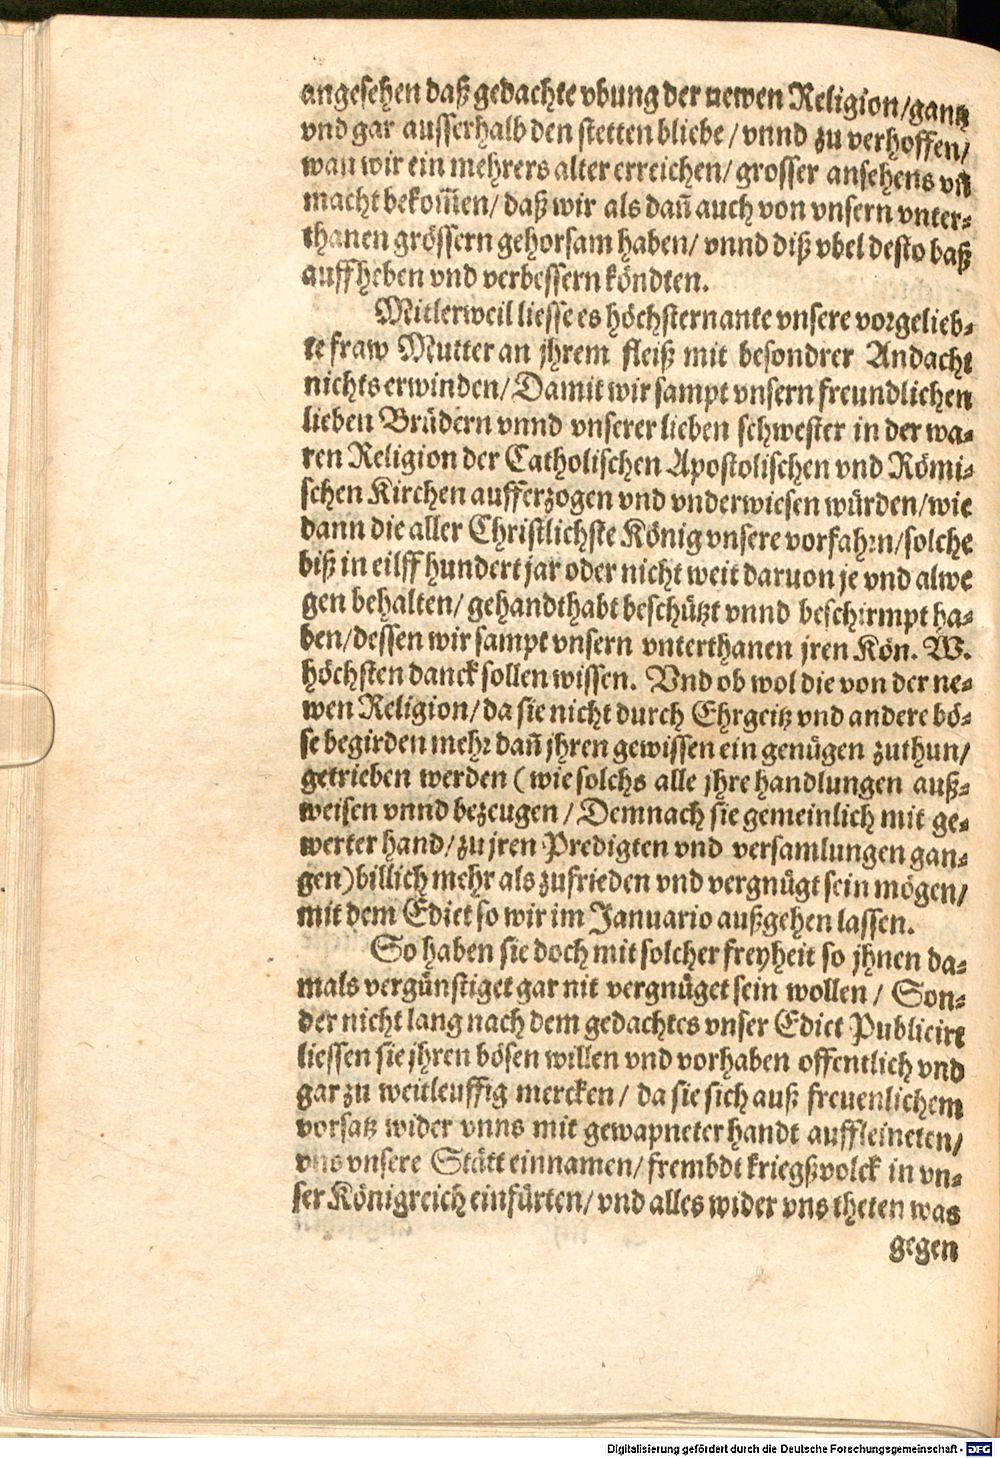 angesehen daß gedachte vbung der newen Religion/gantz
vnd gar ausserhalb den stetten bliebe/vnnd zu verhoffen/
wan wir ein mehrers alter erreichen/grosser ansehens vñ
macht bekom̃en/daß wir als dañ auch von vnsern vnter-
thanen grössern gehorsam haben/vnnd diß vbel desto baß
auffheben vnd verbessern köndten.
Mitlerweil liesse es höchsternante vnsere vorgelieb-
te fraw Mutter an jhrem fleiß mit besondrer Andacht
nichts erwinden/Damit wir sampt vnsern freundlichen
lieben Brüdern vnnd vnserer lieben schwester in der wa-
ren Religion der Catholischen Apostolischen vnd Römi-
schen Kirchen aufferzogen vnd vnderwiesen würden/wie
dann die aller Christlichste König vnsere vorfahrn/solche
biß in eilff hundert jar oder nicht weit daruon je vnd alwe
gen behalten/gehandthabt beschützt vnnd beschirmpt ha-
ben/dessen wir sampt vnsern vnterthanen jren Kön. W.
höchsten danck sollen wissen. Vnd ob wol die von der ne-
wen Religion/da sie nicht durch Ehrgeitz vnd andere bö-
se begirden mehr dañ jhren gewissen ein genügen zuthun/
getrieben werden (wie solchs alle jhre handlungen auß-
weisen vnnd bezeugen/Demnach sie gemeinlich mit ge-
werter hand/zu jren Predigten vnd versamlungen gan-
gen) billich mehr als zufrieden vnd vergnügt sein mögen/
mit dem Edict so wir im Januario außgehen lassen.
So haben sie doch mit solcher freyheit so jhnen da-
mals vergünstiget gar nit vergnüget sein wollen/Son-
der nicht lang nach dem gedachtes vnser Edict Publicirt
liessen sie jhren bösen willen vnd vorhaben offentlich vnd
gar zu weitleuffig mercken/da sie sich auß freuenlichem
vorsatz wider vnns mit gewapneter handt auffleineten/
vns vnsere Stätt einnamen/frembdt kriegßvolck in vn-
ser Königreich einfürten/vnd alles wider vns theten was
gegen
Digitalisierung gefördert durch die Deutsche Forschungsgemeinschaft - DFG